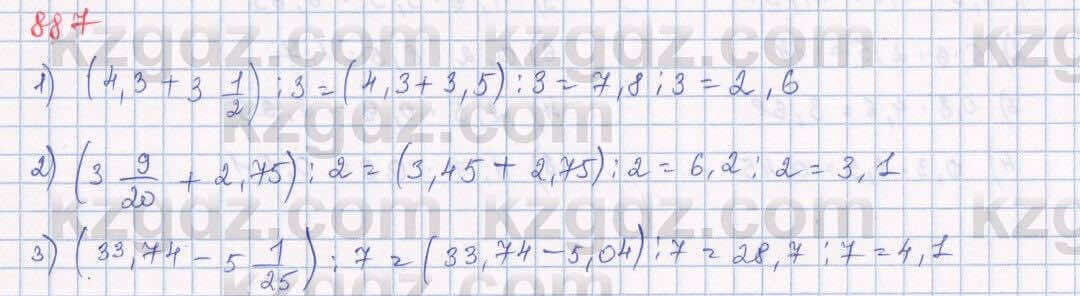 887
kzgdz.com kzgdz.com kz
1) (4,3 + 3 1/2) : 3 = (4,3 + 3,5) : 3 = 7,8 : 3 = 2,6
kzgdz.com kzgdz.com
2) (3 9/20 + 2,75) : 2 = (3,45 + 2,75) : 2 = 6,2 : 2 = 3,1
kzgdz.com kzgdz.com kz
3) (33,74 - 5 1/25) : 7 = (33,74 - 5,04) : 7 = 28,7 : 7 = 4,1